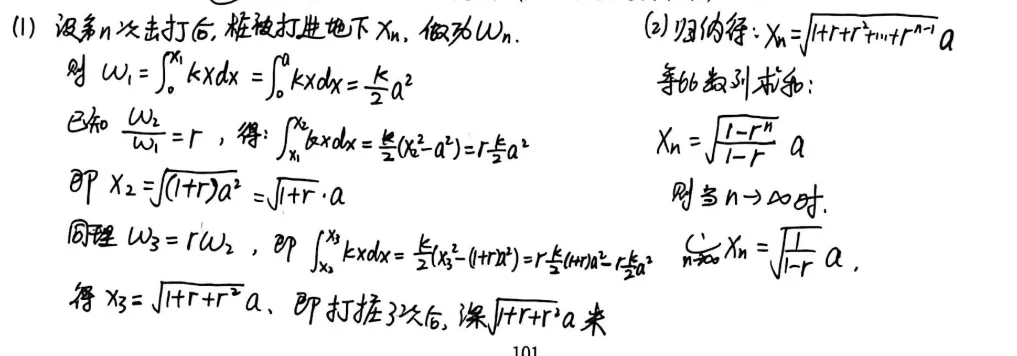 (1) 设第n次击打后,桩被打进地下 Xn,做功Wn.
则 W₁=∫₀^{x₁} kxdx =∫₀^{a} kxdx= k/2 a²
已知 W₂/W₁=r,得:∫_{x₁}^{x₂} kxdx= k/2(x₂²-a²)=r k/2 a²
即 X₂=√((1+r)a²) =√(1+r)·a
同理 W₃=rW₂,即 ∫_{x₂}^{x₃} kxdx= k/2(x₃²-(1+r)a²)=r k/2(1+r)a²-r k/2 a²
得 x₃=√(1+r+r²) a、即打桩3次后,深√(1+r+r²) a 米
(2)归纳得:Xn=√(1+r+r²+...+r^{n-1}) a
等比数列求和:
Xn=√((1-rⁿ)/(1-r)) a
则当n→∞时.
lim_{n→∞} Xn=√(1/(1-r)) a.
101